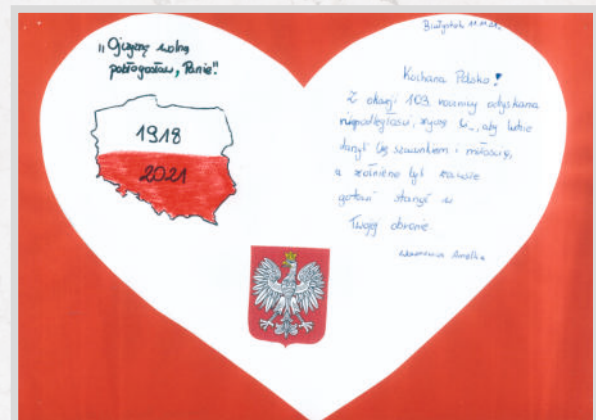 „Ojczyznę wolną
pobłogosław, Panie".
1918
2021
Białystok 11.11.21r.
Kochana Polsko!
Z okazji 103 rocznicy odzyskana
niepodległości, życzę Ci, aby ludzie
darzyli Cię szacunkiem i miłością,
a żołnierze byli zawsze
gotowi stanąć w
Twojej obronie.
Amelka